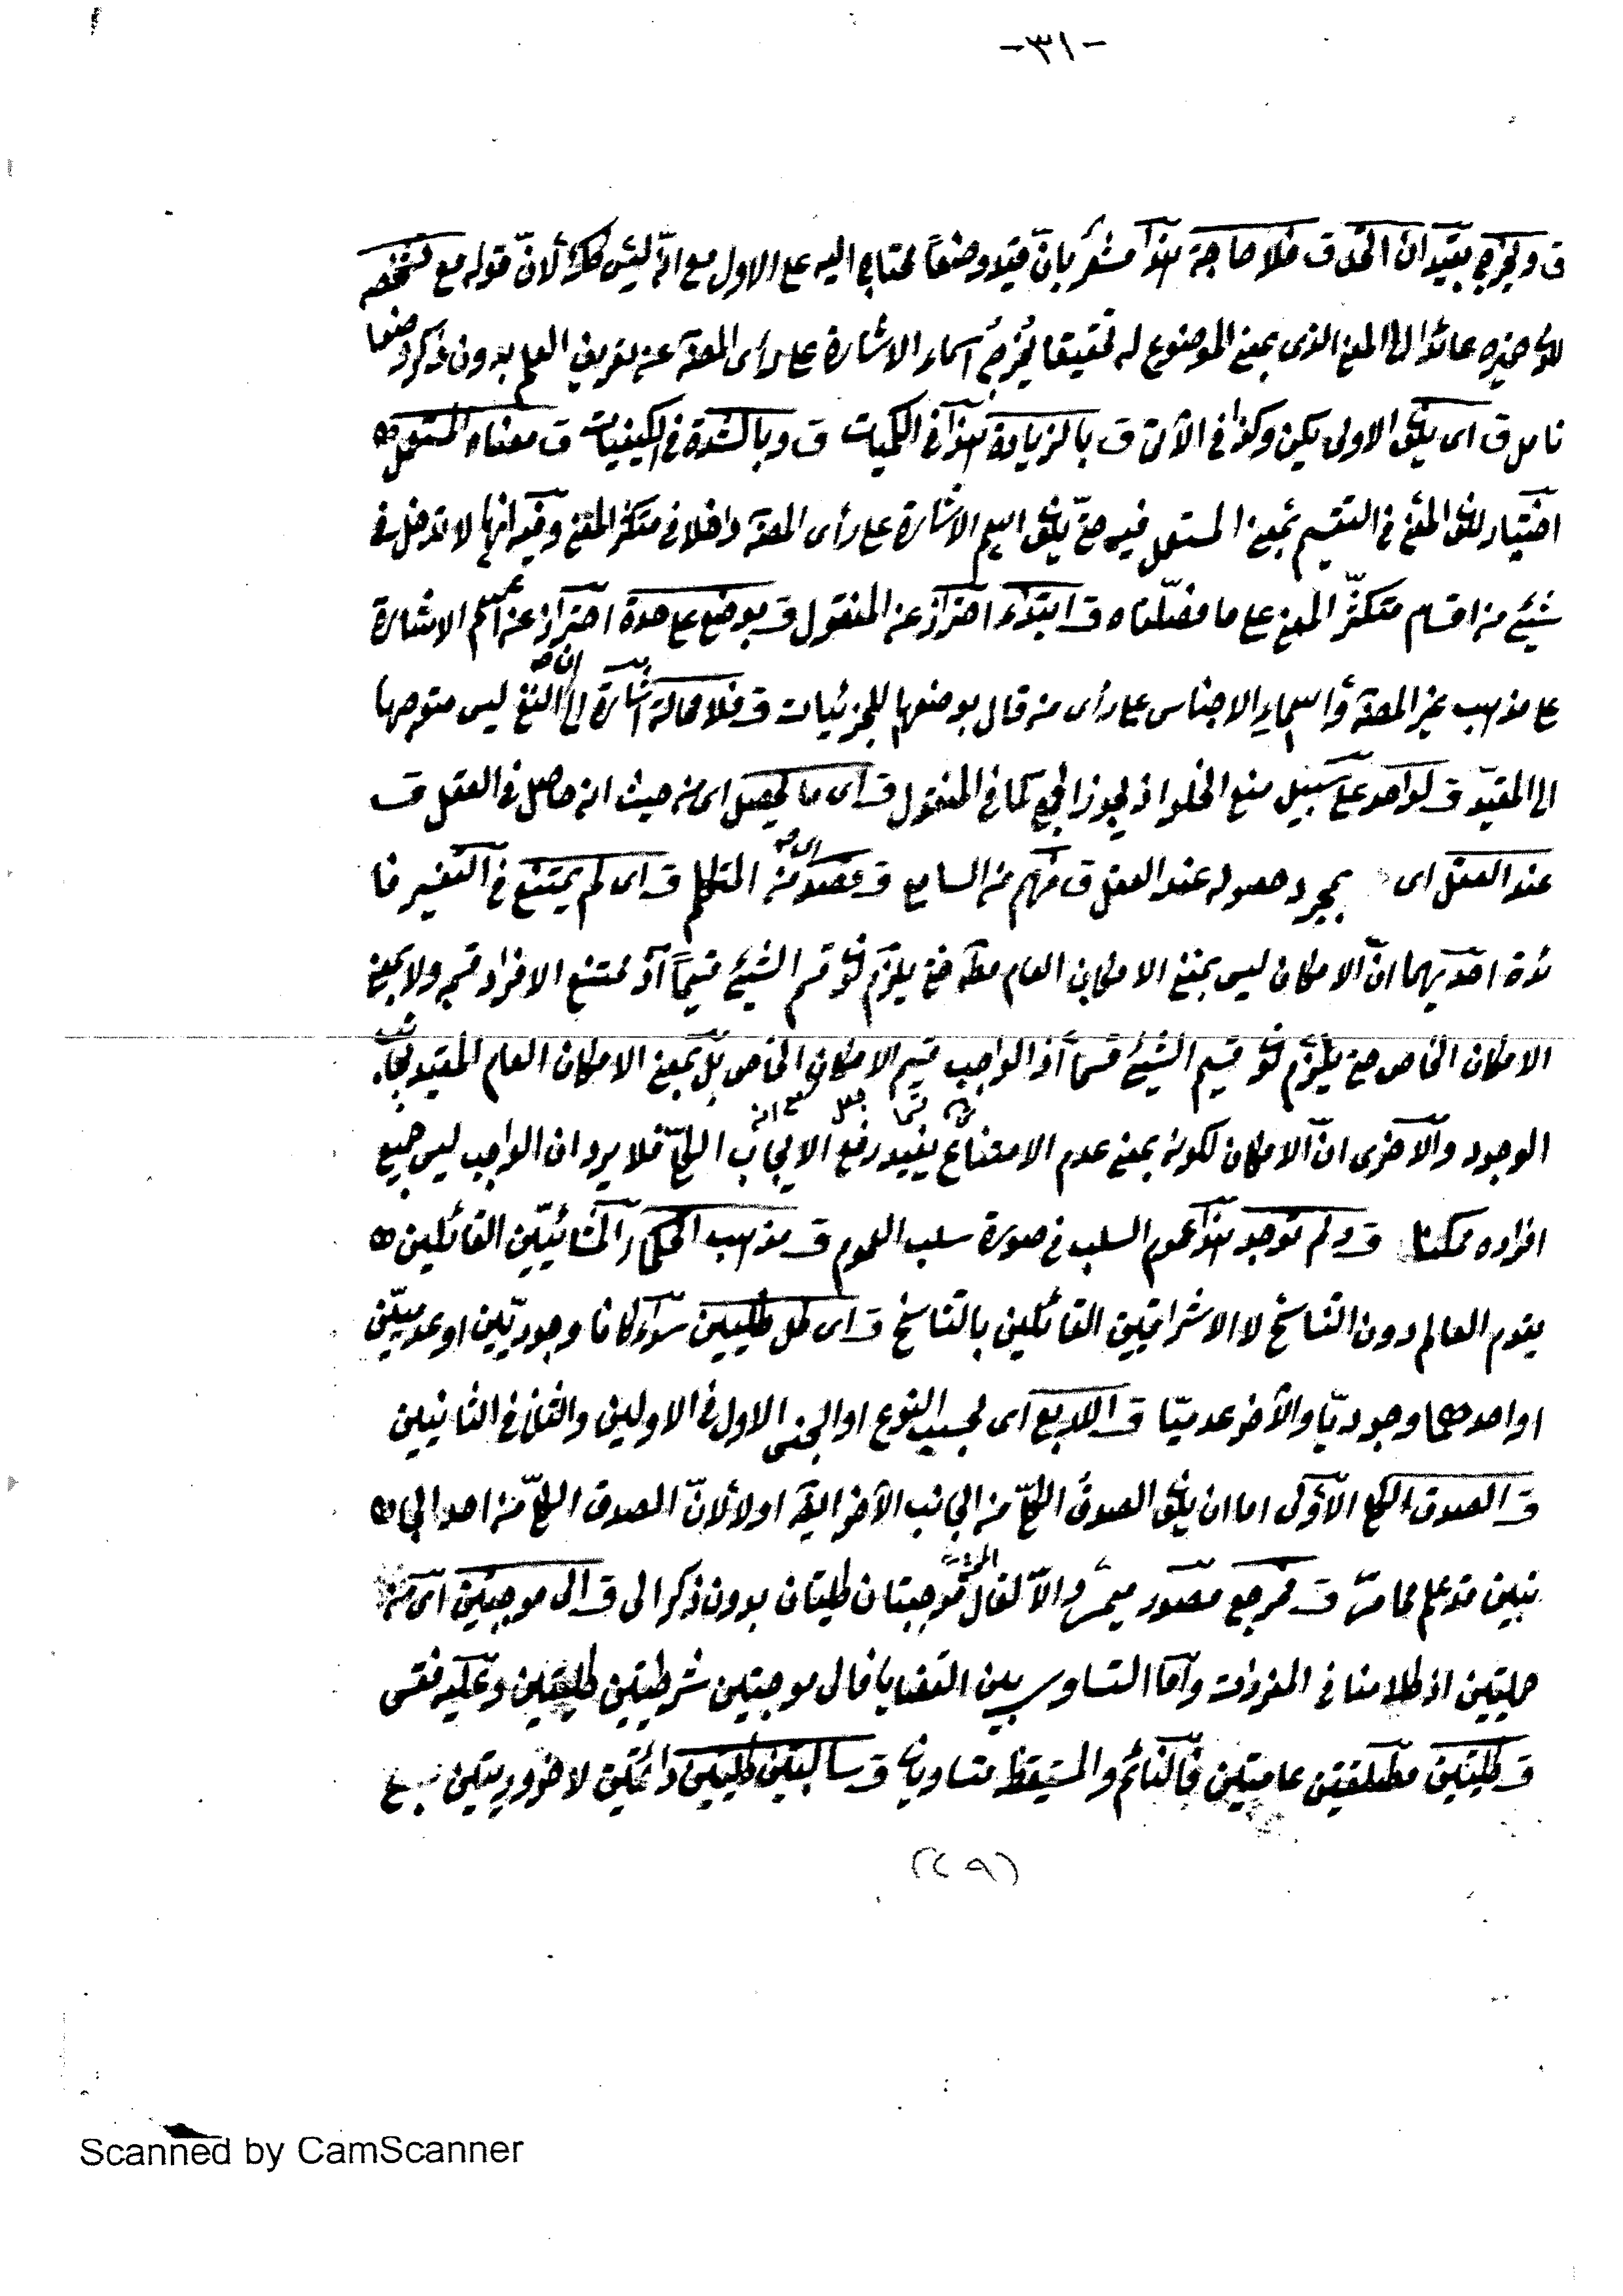 -٣١-
ق ويخرج بقيد ان اتحد ق فلا حاجة هذا مشعر بانّ قيد وضعاً يحتاج اليه على الاول مع انّه ليس كك لأنّ قوله مع تشخصه
عائدا الى المعنى الذى بمعنى الموضوع له تحقيقا يخرج اسماء الاشارة على رأى المص عن تعريف العلم بدون ذكر وضعا
تامل ق اى الاولى يكن وكذا فى الآتى ق بالزيادة هذا فى الكميات ق وبالشدة فى الكيفيات ق معناه المستعمل
اختيار المعنى فى التقسيم بمعنى المستعمل فيه حتى اسم الاشارة على رأى المص داخلا فى متكثر المعنى وفيه انها لا تدخل فى
شيئ من اقسام متكثّر المعنى على ما فصّلناه ق ابتداء احتراز عن المنقول ق بوضع على حدة احتراز عن اسم الاشارة
على مذهب غير المص وأسماء الاجناس على رأى من قال بوضعها للجزئيات ق فلا محالة اشارة الى ان النفى ليس متوجها
الى المقيد ق لواحد على سبيل منع الخلو اذ يجوز الجمع كما فى المنقول ق اى ما يحصل اى من حيث انه حاصل فى العقل ق
عند العقل اى بمجرد حصوله عند العقل ق فهم من السامع ق قصد من المتكلم ق اى لم يمتنع فى التفسير فا
ئدة احديهما انّ الامكان ليس بمعنى الامكان العام مط حتى يلزم قسم الشيئ قسيماً اذ ممتنع الافراد قسمه ولا بمعنى
الامكان الخاص حتى يلزم قسيم الشيئ قسماً اذ الواجب قسيم الامكان الخاص بل بمعنى الامكان العام المقيد بجانب
الوجود والآخرى انّ الامكان لكونه بمعنى عدم الامتناع يفيد رفع الايجاب الكلىّ فلا يرد ان الواجب ليس جميع
افراده ممكنا ق ولم توجد هذا عموم السلب فى صورة سلب العموم ق مذهب الحكماء المشائيّين القائلين
بقدم العالم دون التناسخ لا الاشراقيين القائلين بالتناسخ ق اى كل كليين سواء كانا وجوديّين او عدميّين
او احدهما وجوديّا والآخر عدميّا ق اربع اى بحسب النوع او الجنس الاول فى الاولين والثانى فى الثانيين
ق الصدق الكلى الأولى اما ان الصدق الكلىّ من الجانب الآخر ايض اولا لأنّ الصدق الكلىّ من احد الجا
نبين قد علم مما مرّ ق فمرجع مصدر ميمى والاّ لقال موجبتان كليتان بدون ذكر الى ق الى موجبتين اى من
حمليتين اذ كلامنا فى المفردات وأما التساوى بين القضايا فالى موجبتين شرطيتين كليتين وعليه فقس
ق كليتين مطلقتين عامتين فالنائم والمستيقظ متساويان ق سالبتين كليتين دائمتين لا ضروريتين
(٢٩)
Scanned by CamScanner